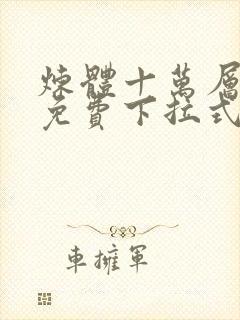 煉體十萬層
免費下拉式
車擁軍